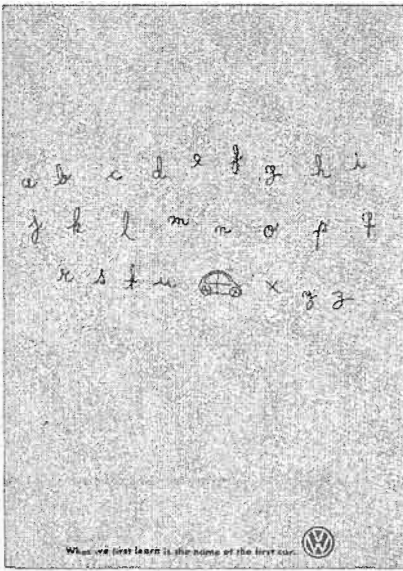 a b c d e f g h i
j k l m n o p q
r s t u x y z
What we first learn is the name of the first car.
VW